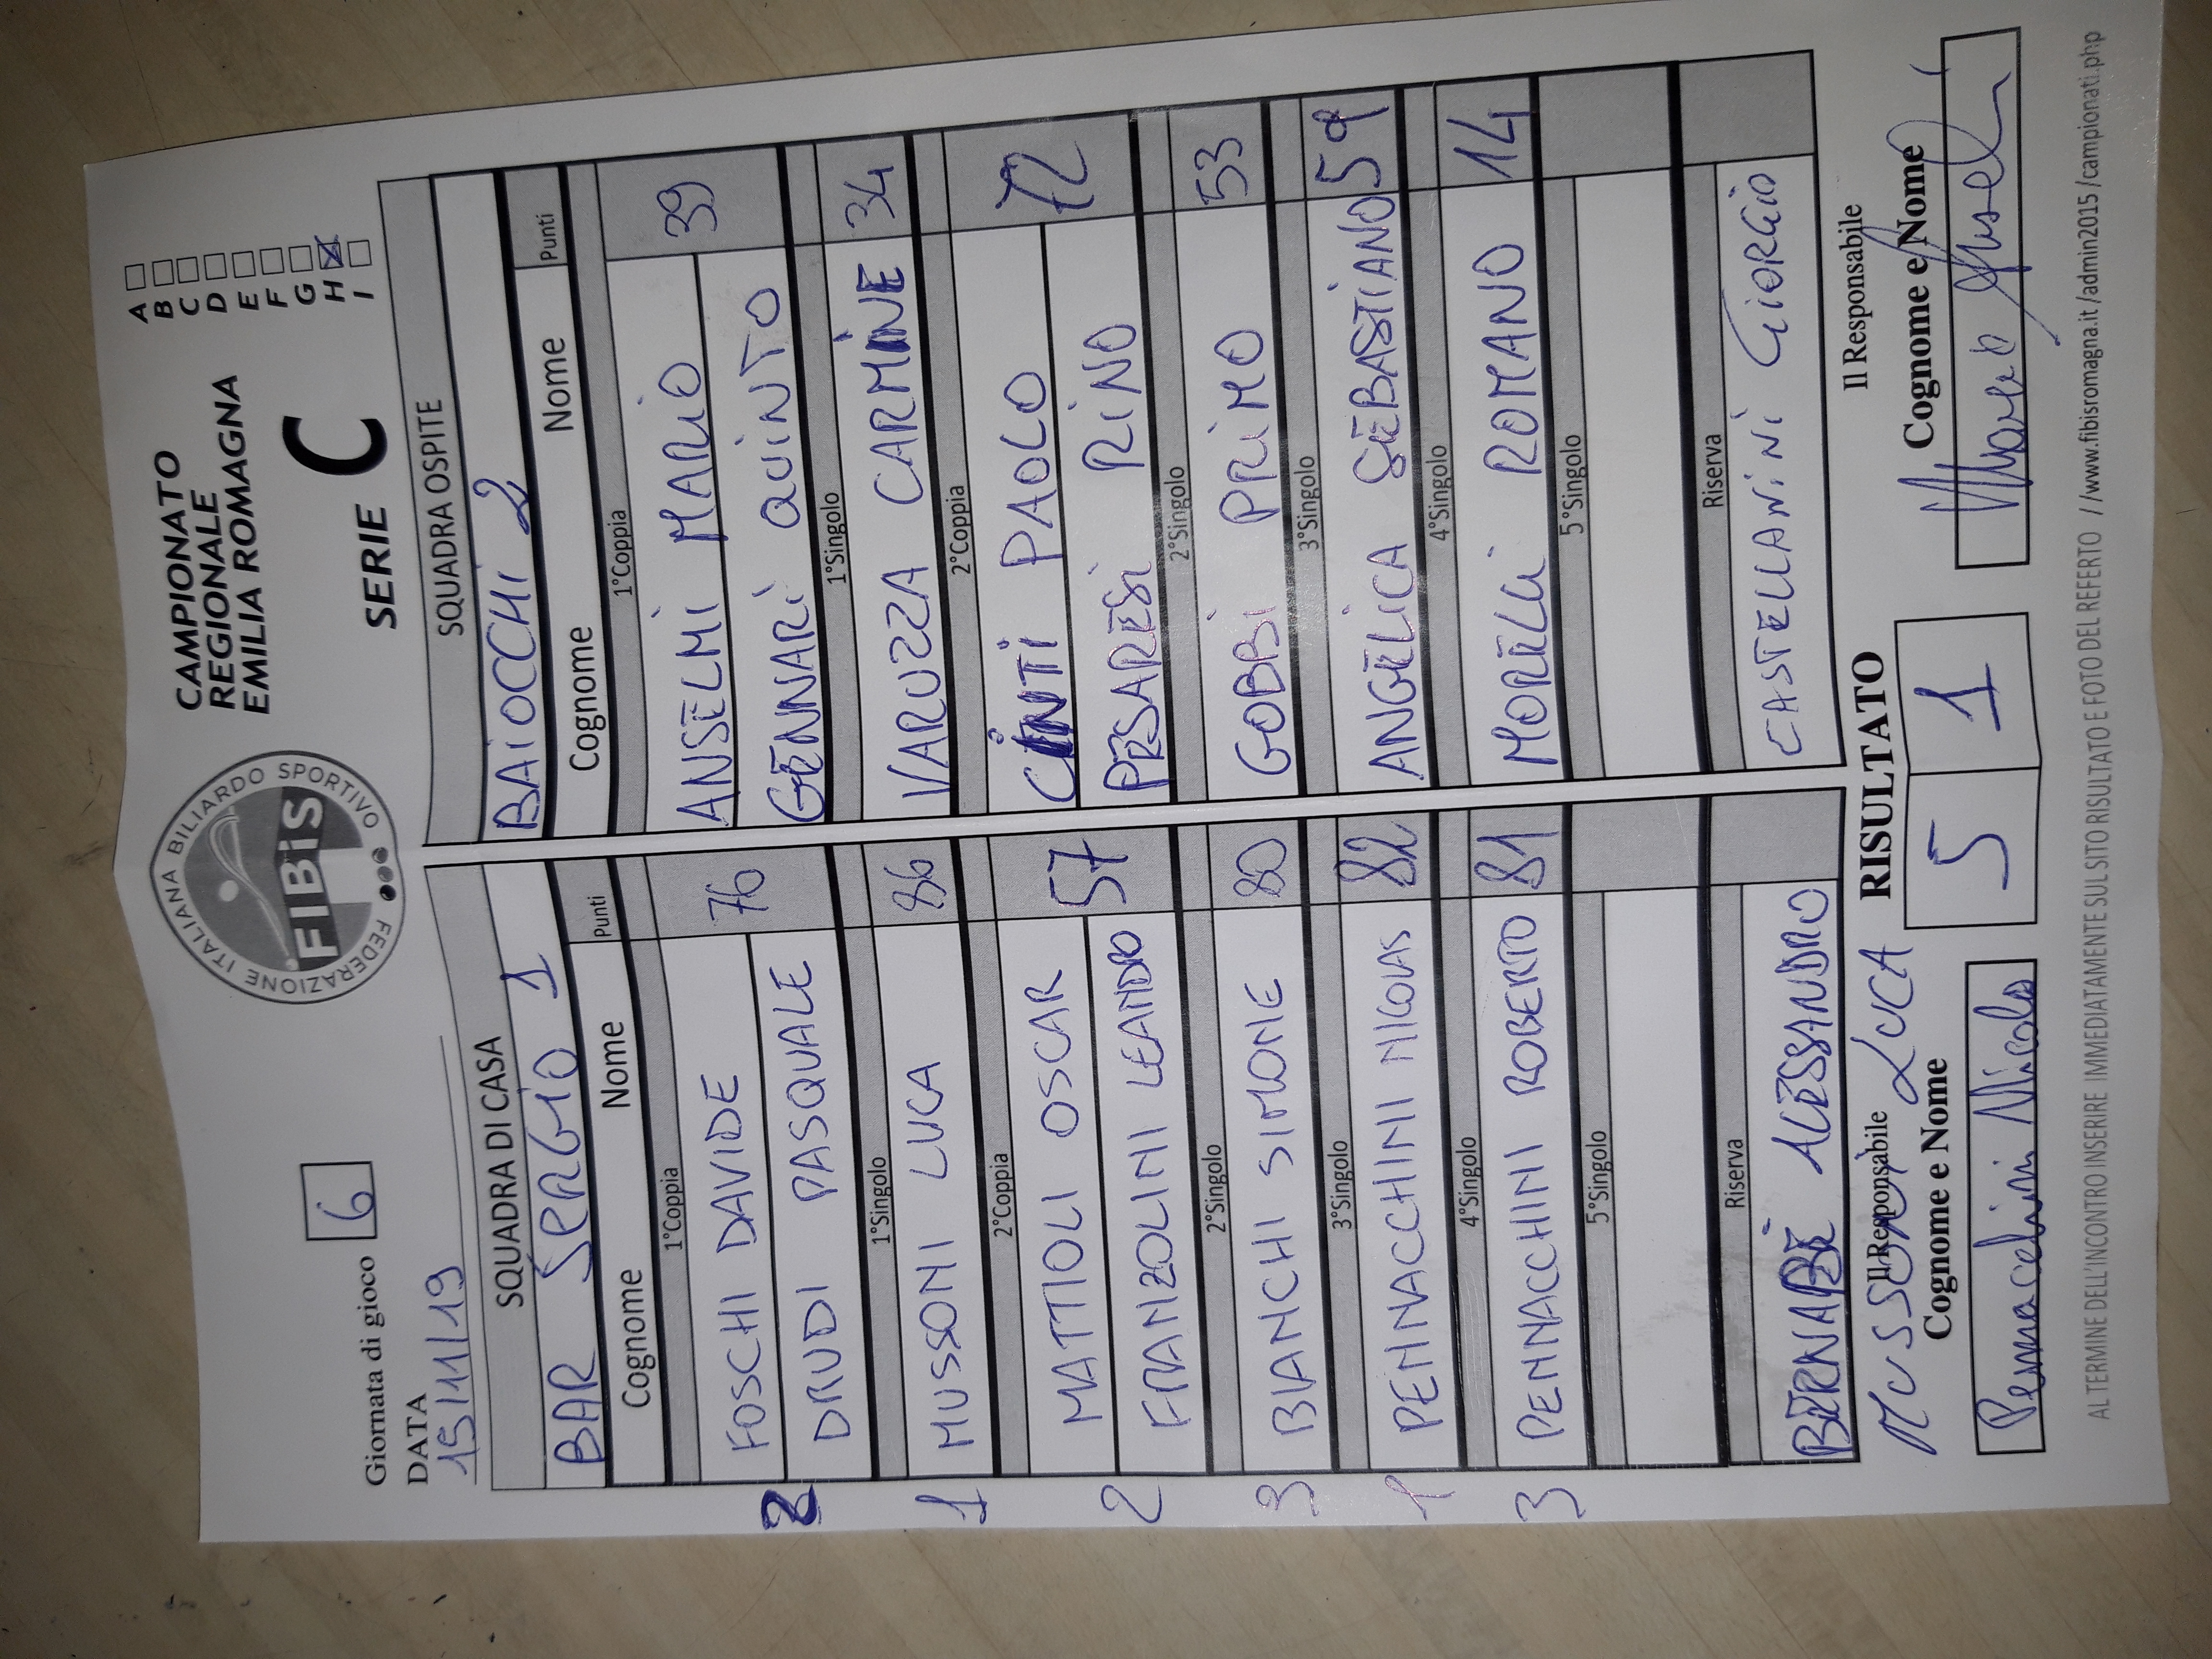 Giornata di gioco 6
DATA
15/11/19
FEDERAZIONE ITALIANA BILIARDO SPORTIVO
FIBiS
CAMPIONATO
REGIONALE
EMILIA ROMAGNA
SERIE C
A
B
C
D
E
F
G
H
I
SQUADRA DI CASA
BAR SERGIO 1
Cognome Nome Punti
1°Coppia
FOSCHI DAVIDE 76
DRUDI PASQUALE
2
1°Singolo
MUSSONI LUCA 86
1
2°Coppia
MATTIOLI OSCAR 57
FRANZOLINI LEANDRO
2
2°Singolo
BIANCHI SIMONE 80
3
3°Singolo
PENNACCHINI NICOLAS 82
1
4°Singolo
PENNACCHINI ROBERTO 81
3
5°Singolo
Riserva
BERNABÈ ALESSANDRO
SQUADRA OSPITE
BAIOCCHI 2
Cognome Nome Punti
1°Coppia
ANSELMI MARIO 39
GENNARI QUINTO
1°Singolo
VARUZZA CARMINE 34
2°Coppia
CINTI PAOLO 72
PESARESI RINO
2°Singolo
GOBBI PRIMO 53
3°Singolo
ANGELICA SEBASTIANO 59
4°Singolo
MORELLI ROMANO 14
5°Singolo
Riserva
CASTELLANINI GIORGIO
Il Responsabile
MUSSONI LUCA
Cognome e Nome
Pennacchini Nicolas
RISULTATO
5 1
Il Responsabile
Cognome e Nome
AL TERMINE DELL'INCONTRO INSERIRE IMMEDIATAMENTE SUL SITO RISULTATO E FOTO DEL REFERTO //www.fibisromagna.it /admin2015 /campionati.php